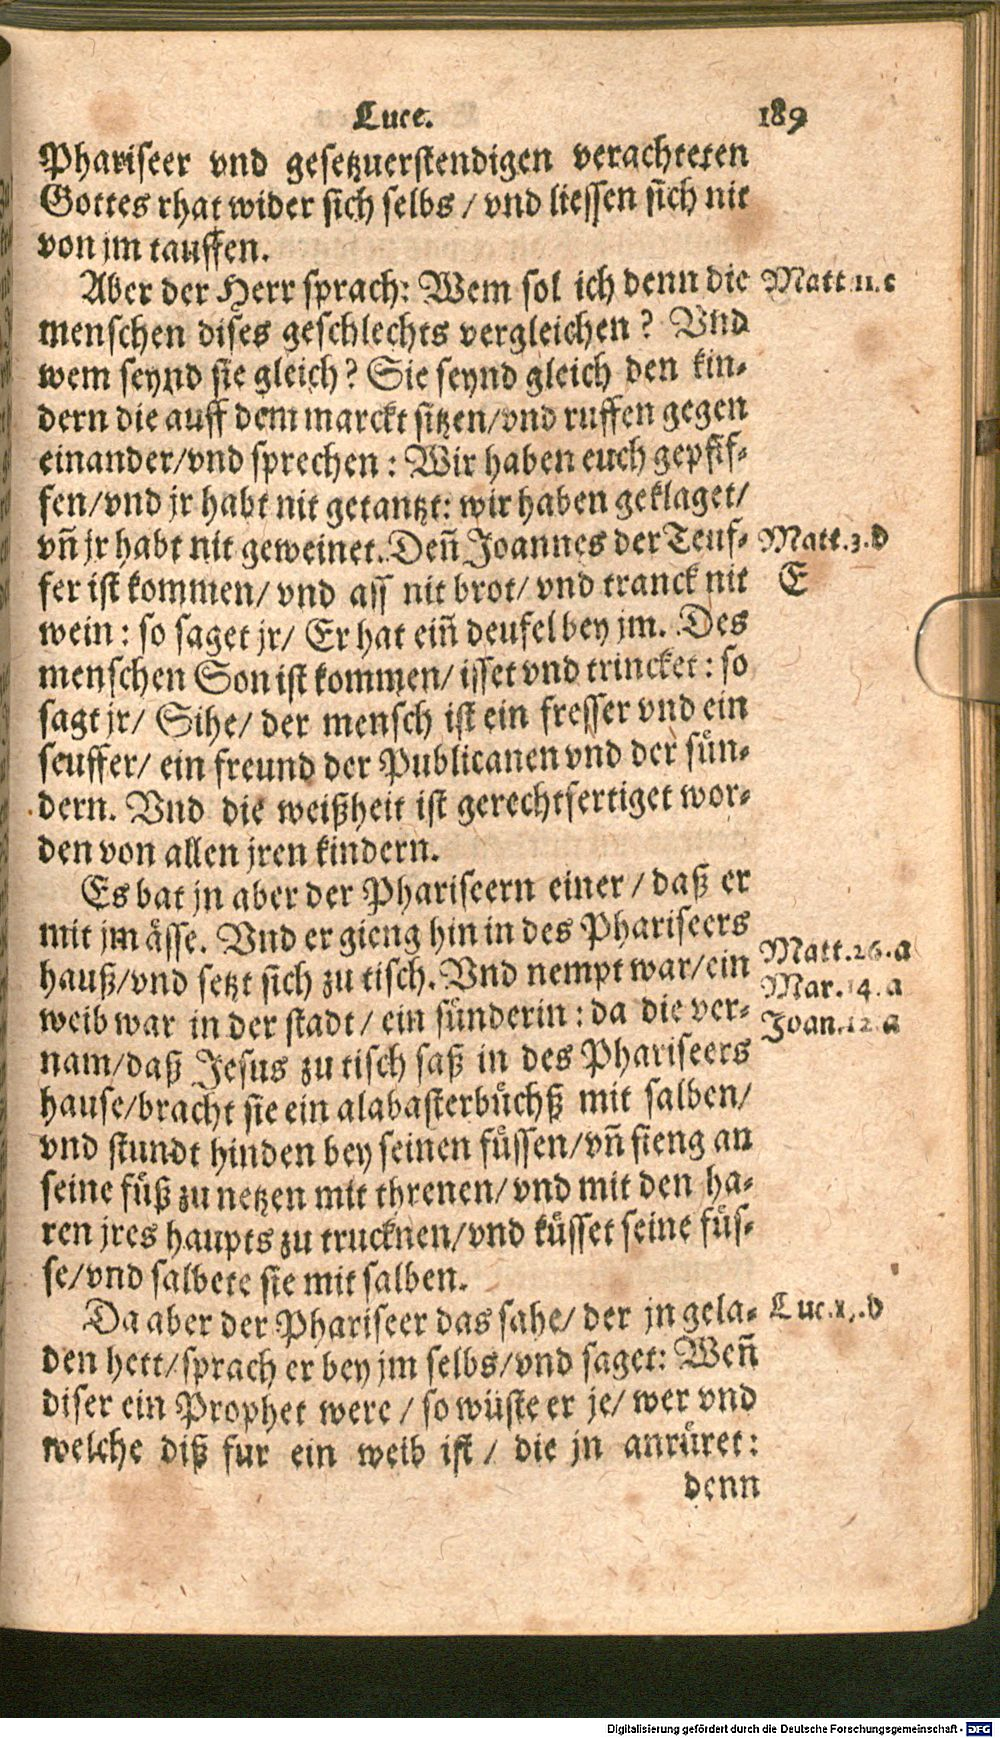 Luce. 189
Phariseer vnd gesetzuerstendigen verachteten
Gottes rhat wider sich selbs / vnd liessen sich nit
von jm tauffen.
Aber der Herr sprach: Wem sol ich denn die Matt.11.c
menschen dises geschlechts vergleichen? Vnd
wem seynd sie gleich? Sie seynd gleich den kin-
dern die auff dem marckt sitzen/vnd ruffen gegen
einander/vnd sprechen: Wir haben euch gepfif-
fen/vnd jr habt nit getantzt: wir haben geklaget/
vñ jr habt nit geweinet. Deñ Joannes der Teuf- Matt.3.d
fer ist kommen/ vnd ass nit brot/ vnd tranck nit E
wein: so saget jr/ Er hat eiñ deufel bey jm. Des
menschen Son ist kommen/ isset vnd trincket: so
sagt jr/ Sihe/ der mensch ist ein fresser vnd ein
seuffer/ ein freund der Publicanen vnd der sün-
dern. Vnd die weißheit ist gerechtfertiget wor-
den von allen jren kindern.
Es bat jn aber der Phariseern einer / daß er
mit jm ässe. Vnd er gieng hin in des Phariseers
hauß/vnd setzt sich zu tisch. Vnd nempt war/ein Matt.26.a
weib war in der stadt/ ein sünderin: da die ver- Mar.14.a
nam/daß Jesus zu tisch saß in des Phariseers Joan.12.a
hause/bracht sie ein alabasterbüchß mit salben/
vnd stundt hinden bey seinen füssen/vñ fieng an
seine füß zu netzen mit threnen/vnd mit den ha-
ren jres haupts zu trucknen/vnd küsset seine füs-
se/vnd salbete sie mit salben.
Da aber der Phariseer das sahe/ der jn gela- Luc.
den hett/sprach er bey jm selbs/vnd saget: Weñ
diser ein Prophet were / so wüste er je/ wer vnd
welche diß fur ein weib ist / die jn anrüret:
denn
Digitalisierung gefördert durch die Deutsche Forschungsgemeinschaft - DFG